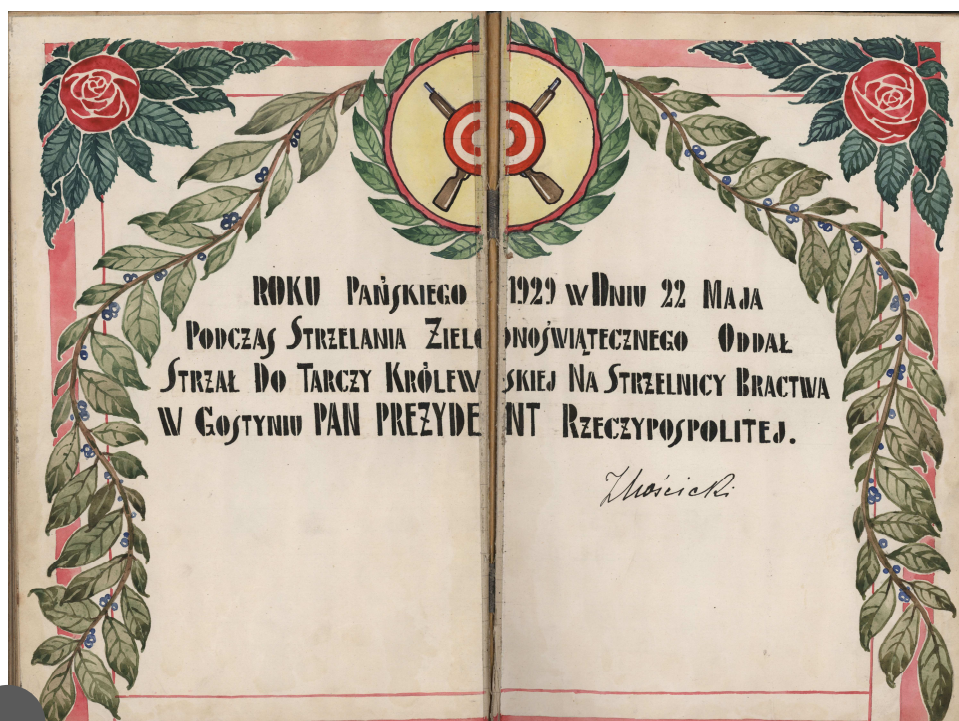 ROKU PAŃSKIEGO 1929 W DNIU 22 MAJA
PODCZAS STRZELANIA ZIELONOŚWIĄTECZNEGO ODDAŁ
STRZAŁ DO TARCZY KRÓLEWSKIEJ NA STRZELNICY BRACTWA
W GOSTYNIU PAN PREZYDENT RZECZYPOSPOLITEJ.
IMościcki